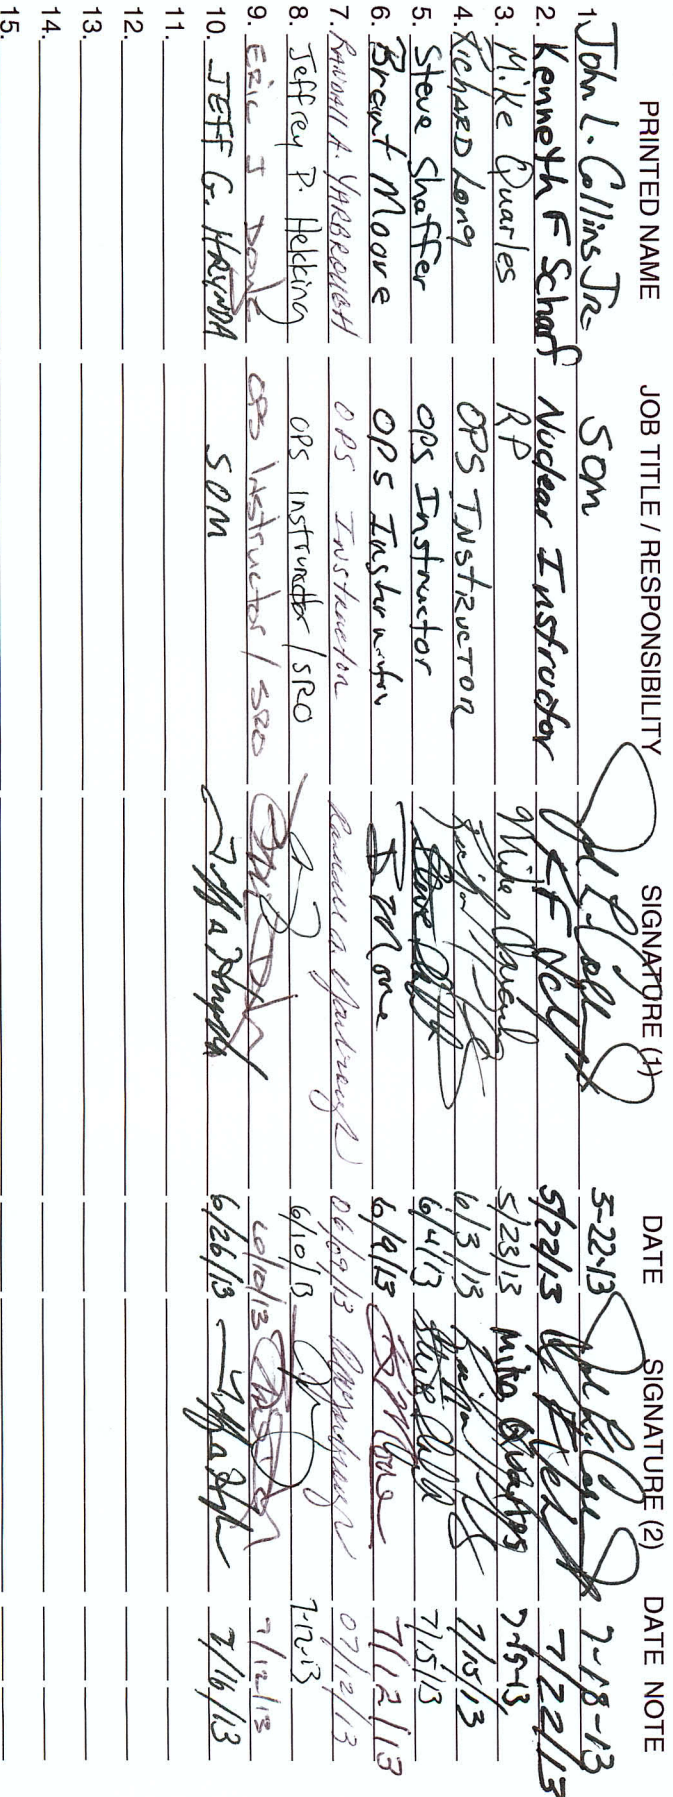 PRINTED NAME JOB TITLE / RESPONSIBILITY SIGNATURE (1) DATE SIGNATURE (2) DATE NOTE
1. John L. Collins Jr. SOM 5-22-13 7-18-13
2. Kenneth F Scharf Nuclear Instructor 5/22/13 7/22/13
3. Mike Quarles RP Mike Quarles 5/23/13 Mike Quarles 7-15-13
4. RicHARD Long OPS INStRUCTOR 6/3/13 7/15/13
5. Steve Shaffer OPS Instructor 6/4/13 7/15/13
6. Brent Moore OPS Instructor B Moore 6/9/13 B Moore 7/12/13
7. RANDALL A. YARBROUGH OPS Instructor Randall A. Yarbrough 06/09/13 07/12/13
8. Jeffrey P. Hekking OPS Instructor / SRO 6/10/13 7-12-13
9. Eric J OPS Instructor / SRO 6/10/13 7/12/13
10. JEFF G. HRYNDA SOM 6/26/13 7/16/13
11.
12.
13.
14.
15.